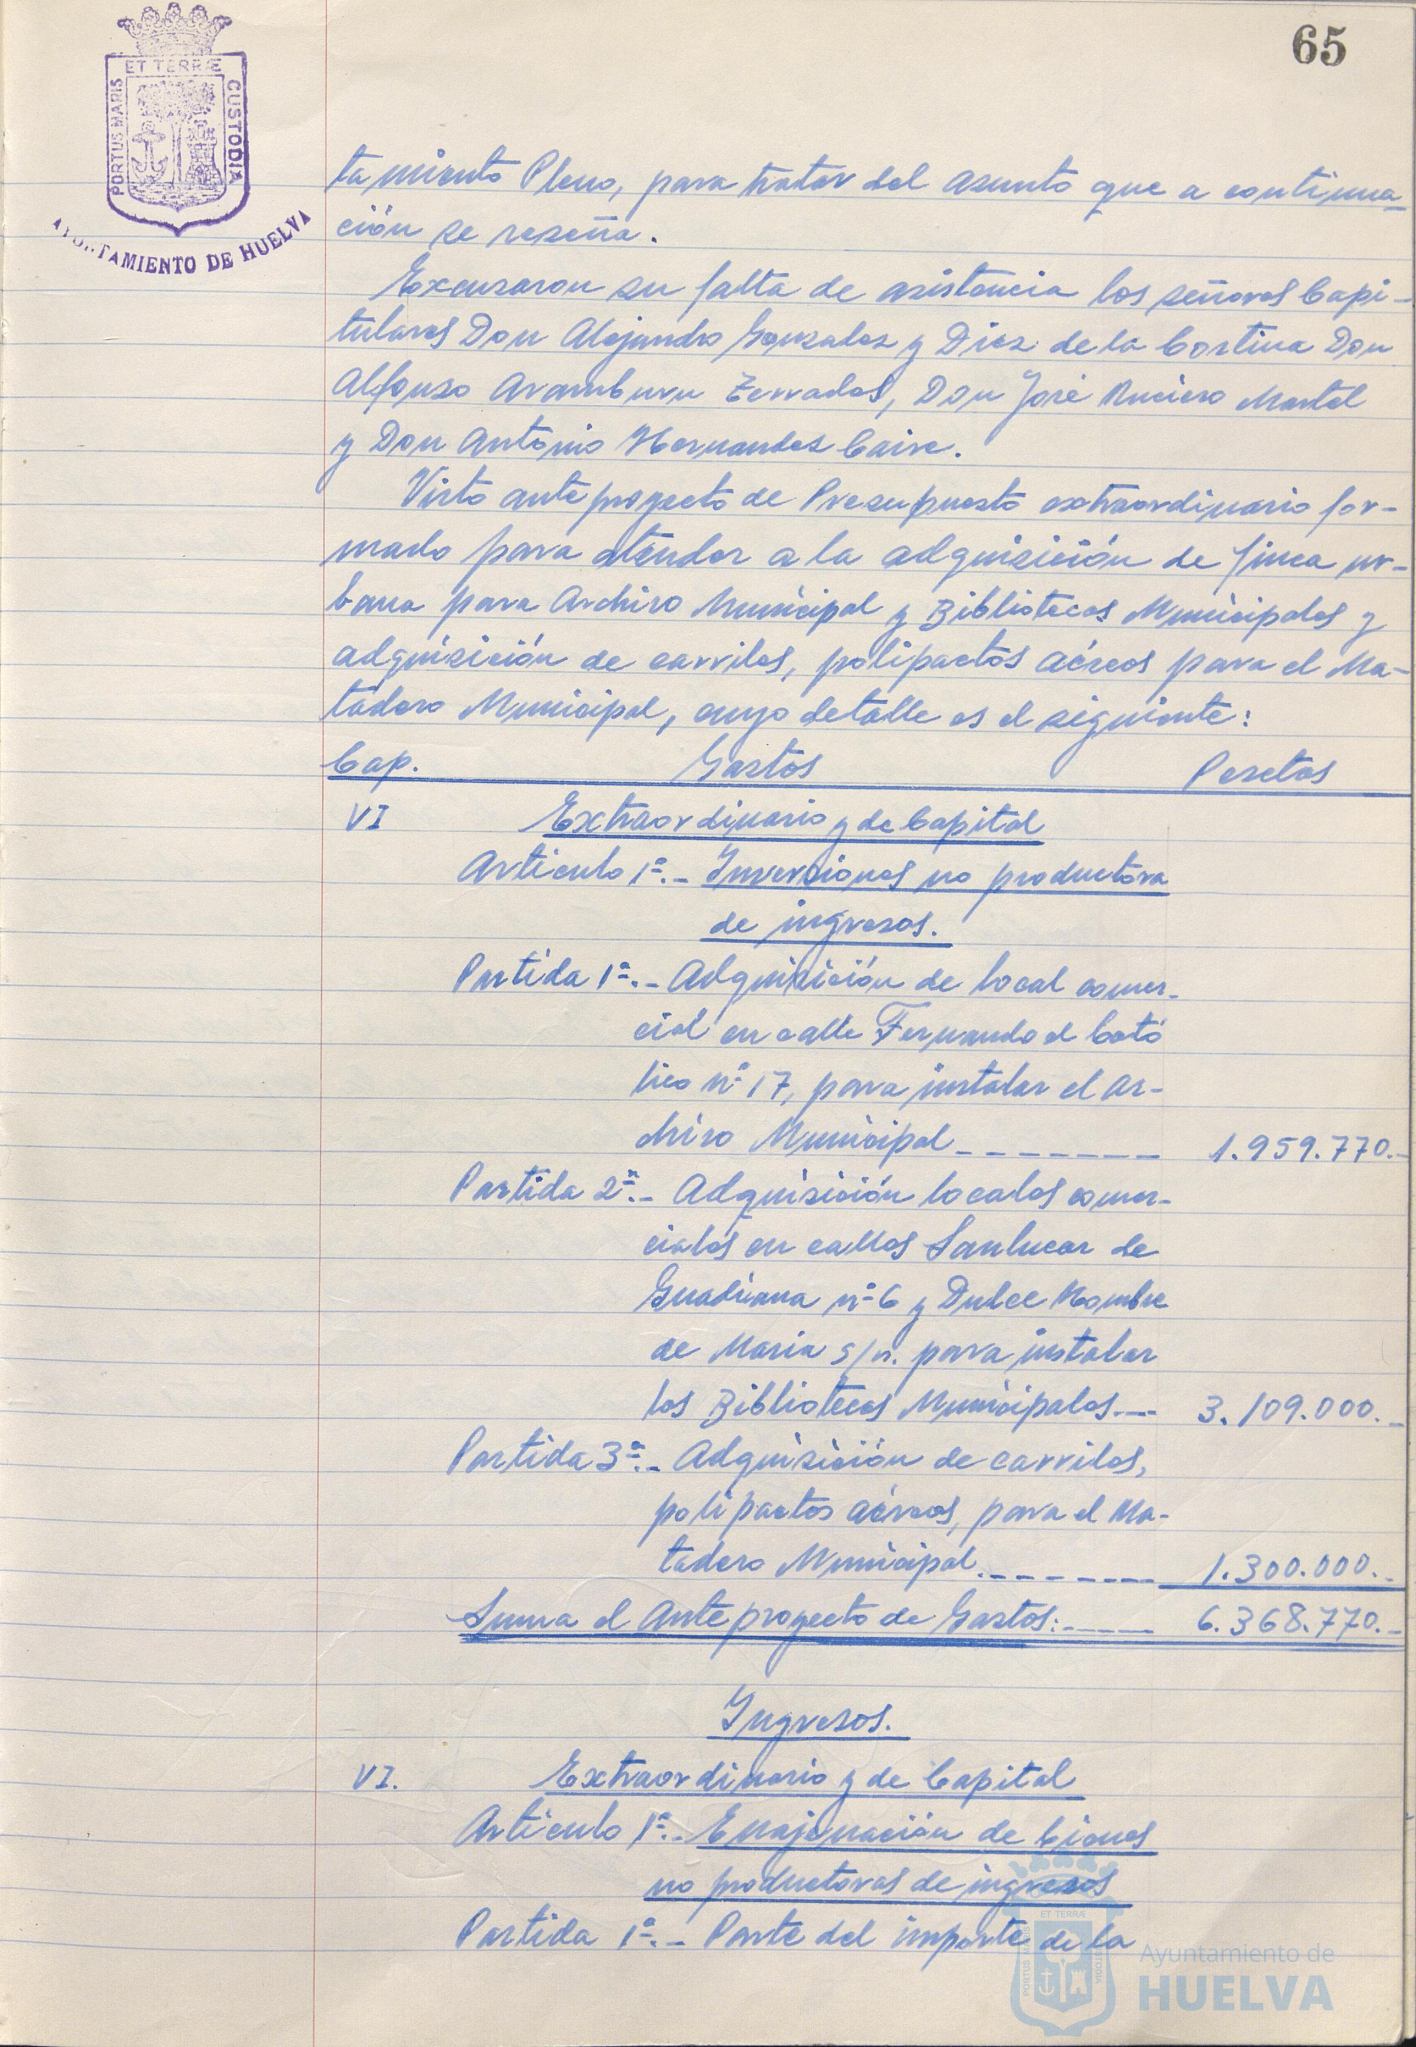 65
ET TERRÆ
PORTUS MARIS
CUSTODIA
AYUNTAMIENTO DE HUELVA
tamiento Pleno, para tratar del asunto que a continua-
ción se reseña.
Excusaron su falta de asistencia los señores Capi-
tulares Don Alejandro Gonzalez y Diez de la Cortina Don
Alfonso Aramburu Terrades, Don José Ruciero Martel
y Don Antonio Hernandez Caire.
Visto anteproyecto de Presupuesto extraordinario for-
mado para atender a la adquisición de finca ur-
bana para Archivo Municipal y Bibliotecas Municipales y
adquisición de carriles, polipactos aéreos para el Ma-
tadero Municipal, cuyo detalle es el siguiente:
Cap. Gastos Pesetas
VI Extraordinario y de Capital
Articulo 1º.- Inversiones no productora
de ingresos.
Partida 1ª.- Adquisición de local comer-
cial en calle Fernando el Cató
lico nº 17, para instalar el Ar-
chivo Municipal------- 1.959.770.-
Partida 2ª.- Adquisición locales comer-
ciales en calles Sanlucar de
Guadiana nº 6 y Dulce Nombre
de Maria s/n. para instalar
las Bibliotecas Municipales.-- 3.109.000.-
Partida 3ª.- Adquisición de carriles,
polipactos aéreos, para el Ma-
tadero Municipal.------- 1.300.000.-
Suma el Anteproyecto de Gastos:---- 6.368.770.-
Ingresos.
VI. Extraordinario y de Capital
Articulo 1º.- Enajenación de bienes
no productoras de ingresos
Partida 1ª.- Parte del importe de la
ET TERRÆ
PORTUS MARIS
CUSTODIA
Ayuntamiento de
HUELVA